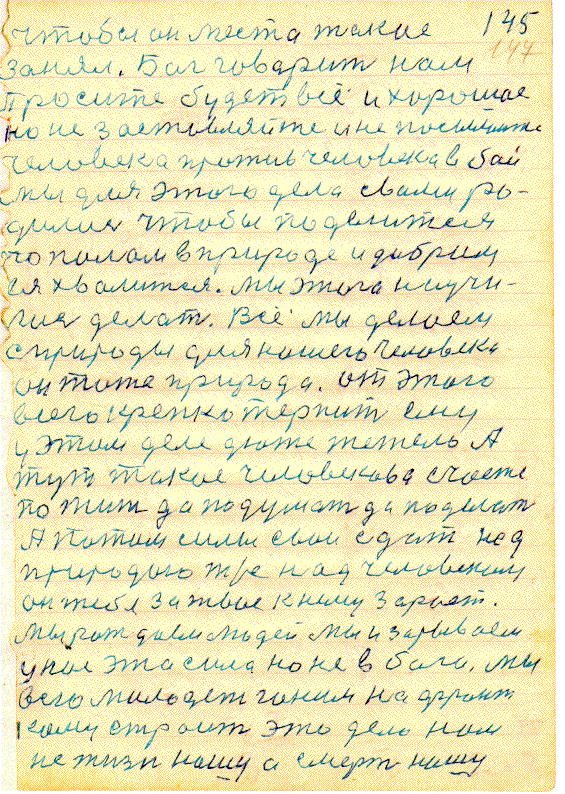 145
чтобы он места такое
147
занял. Бог говарит нам
просите будет всё и хорошое
но не заставляйте и не посылайте
человека против человека в бой
мы для этого дела свами ро-
дилися чтобы поделится
пополам в природе и добрим
ся хвалится. мы этога ниучи-
лися делат. Всё мы делаем
с природы для нашего человека
он тоже природа. от этого
всего крепко терпит ему
у этом деле дюже тежело А
тут такое человекова счастє
пожит да подумат да поделат
А потом силы свои сдат над
природою тже над человеком
он тебя за твое к нему зароет.
мы рождаем людей мы и зарываем
у нас эта сила но не в бога. мы
всего молодет гоним на фронт
кому строит это дело нам
не жизн нашу а смерт нашу